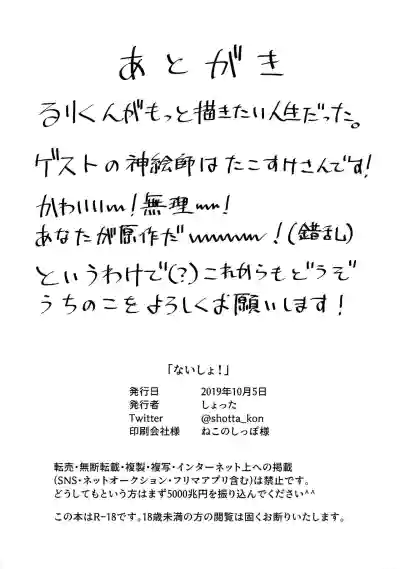 あとがき
るりくんがもっと描きたい人生だった。
ゲストの神絵師はたこすけさんです!
かわいいぃぃ!無理ぃぃ!
あなたが原作だぃぃぃぃぃ!(錯乱)
というわけで(?)これからもどうぞ
うちのこをよろしくお願いします!
「ないしょ!」
発行日 2019年10月5日
発行者 しょった
Twitter @shotta_kon
印刷会社様 ねこのしっぽ様
転売・無断転載・複製・複写・インターネット上への掲載
(SNS・ネットオークション・フリマアプリ含む)は禁止です。
どうしてもという方はまず5000兆円を振り込んでください^^
この本はR-18です。18歳未満の方の閲覧は固くお断りいたします。